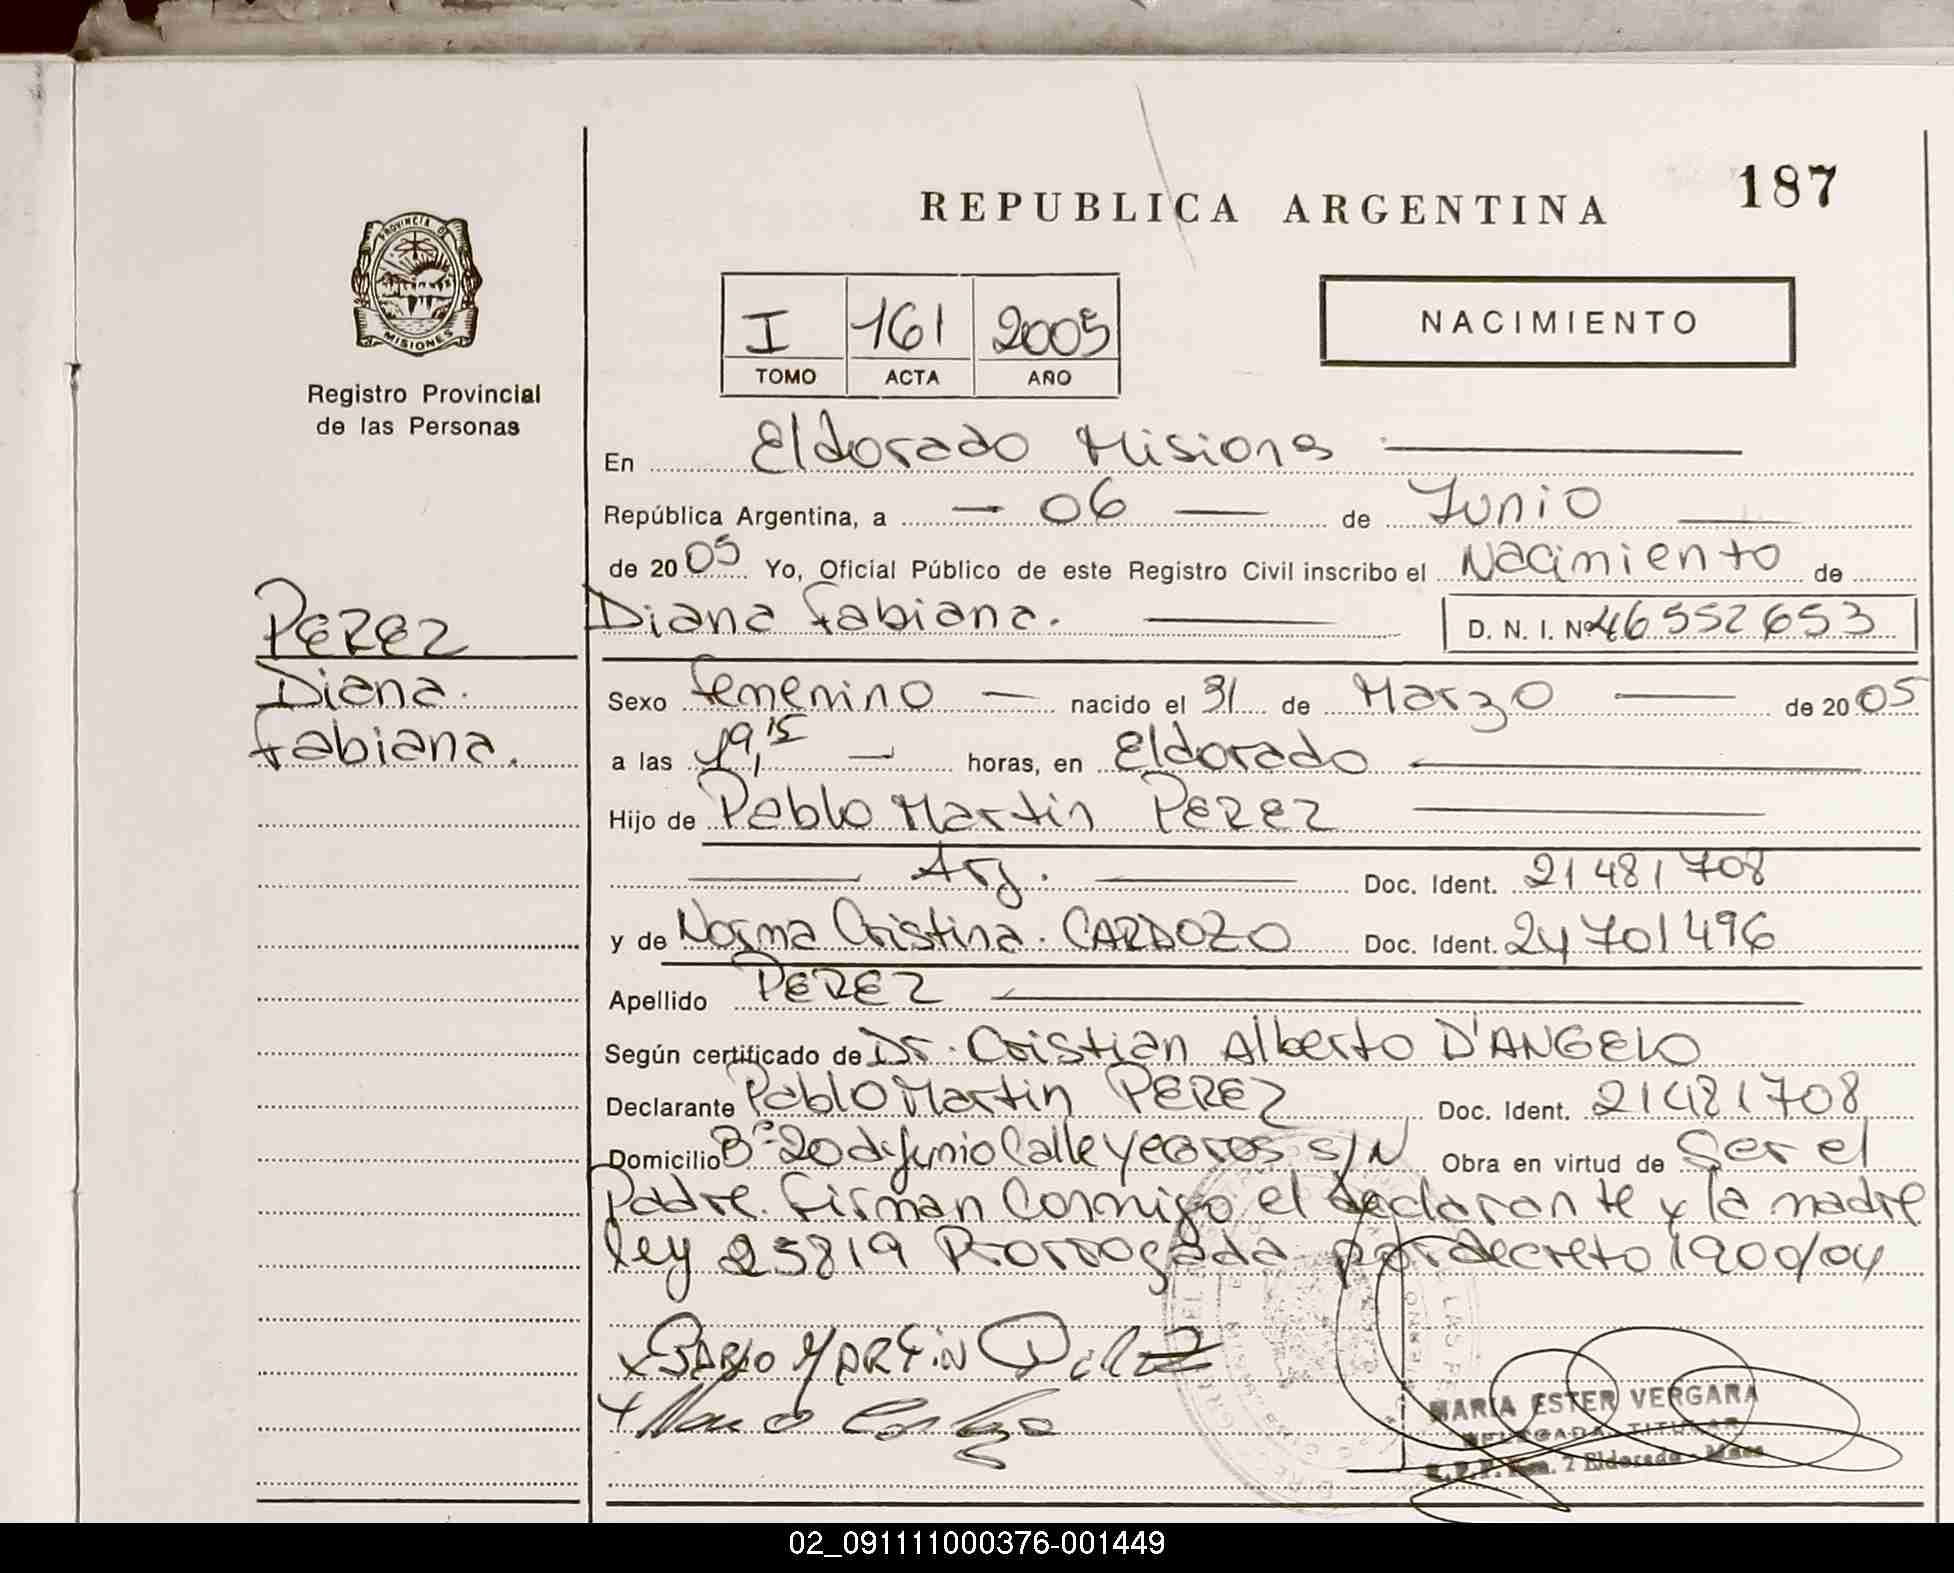 187
REPUBLICA ARGENTINA
PROVINCIA DE
MISIONES
Registro Provincial
de las Personas
I 161 2005
TOMO ACTA AÑO
NACIMIENTO
En Eldorado Misiones
República Argentina, a 06 de Junio
de 2005 Yo, Oficial Público de este Registro Civil inscribo el Nacimiento de
Diana Fabiana. D. N. I. Nº 46552653
PEREZ
Diana
Fabiana.
Sexo femenino nacido el 31 de Marzo de 2005
a las 19,15 horas, en Eldorado
Hijo de Pablo Martin PEREZ
Arg. Doc. Ident. 21481708
y de Norma Cristina. CARDOZO Doc. Ident. 24701496
Apellido PEREZ
Según certificado de Dr. Cristian Alberto D'ANGELO
Declarante Pablo Martin PEREZ Doc. Ident. 21481708
Domicilio Bº 20 de Junio Calle S/N Obra en virtud de Ser el
Padre. Firman Conmigo el declarante y la madre
ley 25819 Prorrogada por decreto 1900/04
x PABLO MARTIN Perez
MARIA ESTER VERGARA
DELEGADA TITULAR
Eldorado - Mnes
02_091111000376-001449